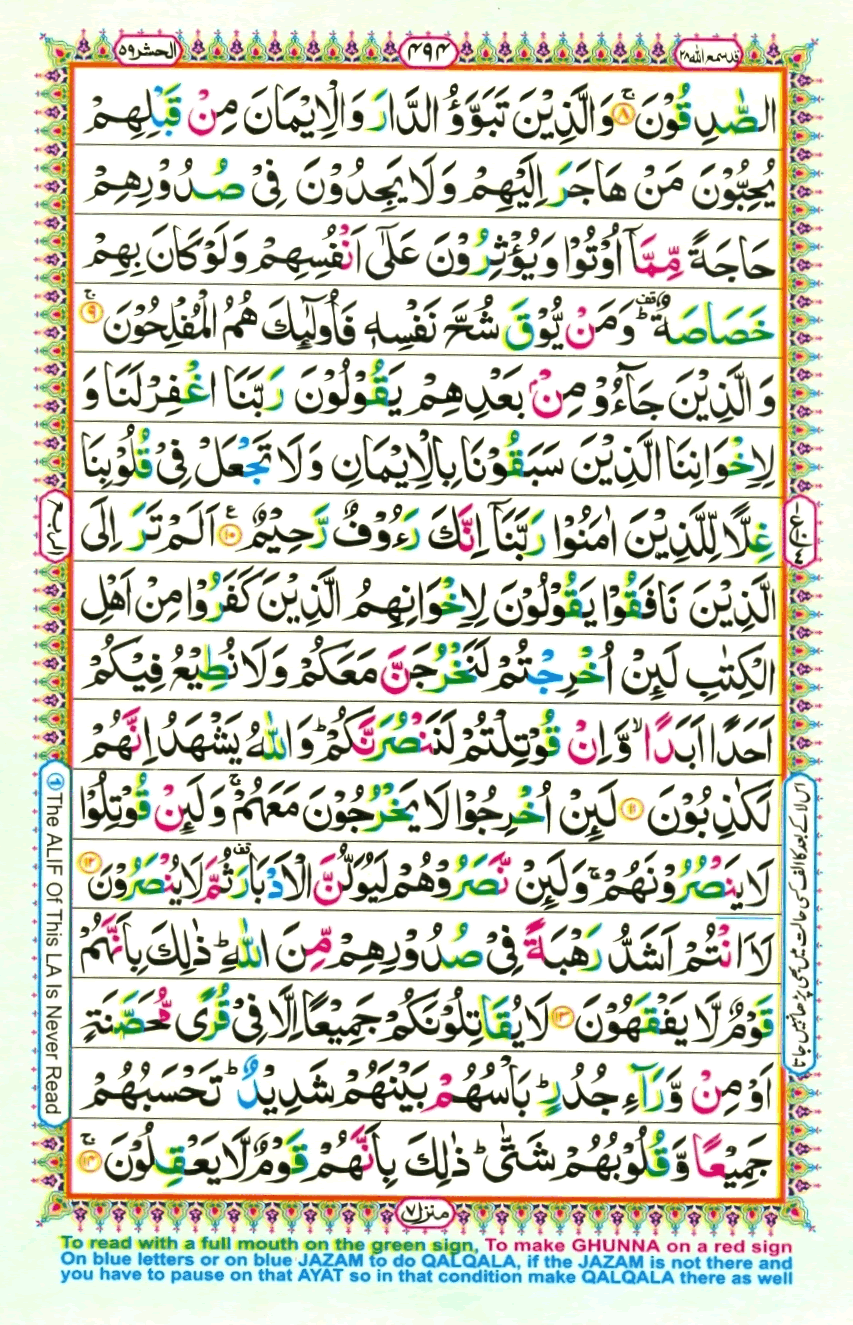 قد سمع الله ٢٨
٤٩٤
الحشر ٥٩
الصّٰدِقُوْنَ ۚ‏ ﴿۸﴾ وَالَّذِيْنَ تَبَوَّؤُ الدَّارَ وَالْاِيْمَانَ مِنْ قَبْلِهِمْ
يُحِبُّوْنَ مَنْ هَاجَرَ اِلَيْهِمْ وَلَا يَجِدُوْنَ فِىْ صُدُوْرِهِمْ
حَاجَةً مِّمَّاۤ اُوْتُوْا وَيُؤْثِرُوْنَ عَلٰٓى اَنْفُسِهِمْ وَلَوْ كَانَ بِهِمْ
خَصَاصَةٌ ؕقف وَمَنْ يُّوْقَ شُحَّ نَفْسِهٖ فَاُولٰٓئِكَ هُمُ الْمُفْلِحُوْنَ ۚ ﴿۹﴾
وَالَّذِيْنَ جَآءُوْ مِنْۢ بَعْدِهِمْ يَقُوْلُوْنَ رَبَّنَا اغْفِرْ لَنَا وَ
لِاِخْوَانِنَا الَّذِيْنَ سَبَقُوْنَا بِالْاِيْمَانِ وَلَا تَجْعَلْ فِىْ قُلُوْبِنَا
غِلًّا لِّلَّذِيْنَ اٰمَنُوْا رَبَّنَاۤ اِنَّكَ رَءُوْفٌ رَّحِيْمٌ ﴿۱۰﴾ ع اَلَمْ تَرَ اِلَى
الَّذِيْنَ نَافَقُوْا يَقُوْلُوْنَ لِاِخْوَانِهِمُ الَّذِيْنَ كَفَرُوْا مِنْ اَهْلِ
الْكِتٰبِ لَئِنْ اُخْرِجْتُمْ لَنَخْرُجَنَّ مَعَكُمْ وَلَا نُطِيْعُ فِيْكُمْ
اَحَدًا اَبَدًا ۙ وَّاِنْ قُوْتِلْتُمْ لَنَنْصُرَنَّكُمْ ؕ وَاللّٰهُ يَشْهَدُ اِنَّهُمْ
لَكٰذِبُوْنَ ﴿۱۱﴾ لَئِنْ اُخْرِجُوْا لَا يَخْرُجُوْنَ مَعَهُمْ ۚ وَلَئِنْ قُوْتِلُوْا
لَا يَنْصُرُوْنَهُمْ ۚ وَلَئِنْ نَّصَرُوْهُمْ لَيُوَلُّنَّ الْاَدْبَارَ قف ثُمَّ لَا يُنْصَرُوْنَ ﴿۱۲﴾
لَا۟اَنْتُمْ اَشَدُّ رَهْبَةً فِىْ صُدُوْرِهِمْ مِّنَ اللّٰهِ ؕ ذٰلِكَ بِاَنَّهُمْ
قَوْمٌ لَّا يَفْقَهُوْنَ ﴿۱۳﴾ لَا يُقَاتِلُوْنَكُمْ جَمِيْعًا اِلَّا فِىْ قُرًى مُّحَصَّنَةٍ
اَوْ مِنْ وَّرَآءِ جُدُرٍ ؕ بَاْسُهُمْ بَيْنَهُمْ شَدِيْدٌ ؕ تَحْسَبُهُمْ
جَمِيْعًا وَّقُلُوْبُهُمْ شَتّٰى ؕ ذٰلِكَ بِاَنَّهُمْ قَوْمٌ لَّا يَعْقِلُوْنَ ۚ ﴿۱۴﴾
الربع
① The ALIF Of This LA Is Never Read
اس لا کے بعد کا الف کسی حالت میں بھی پڑھا نہیں جاتا
منزل ۷
To read with a full mouth on the green sign, To make GHUNNA on a red sign
On blue letters or on blue JAZAM to do QALQALA, if the JAZAM is not there and
you have to pause on that AYAT so in that condition make QALQALA there as well